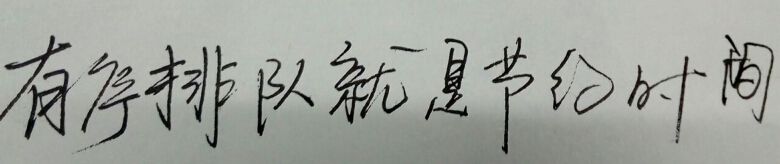 有序排队就是节约时间